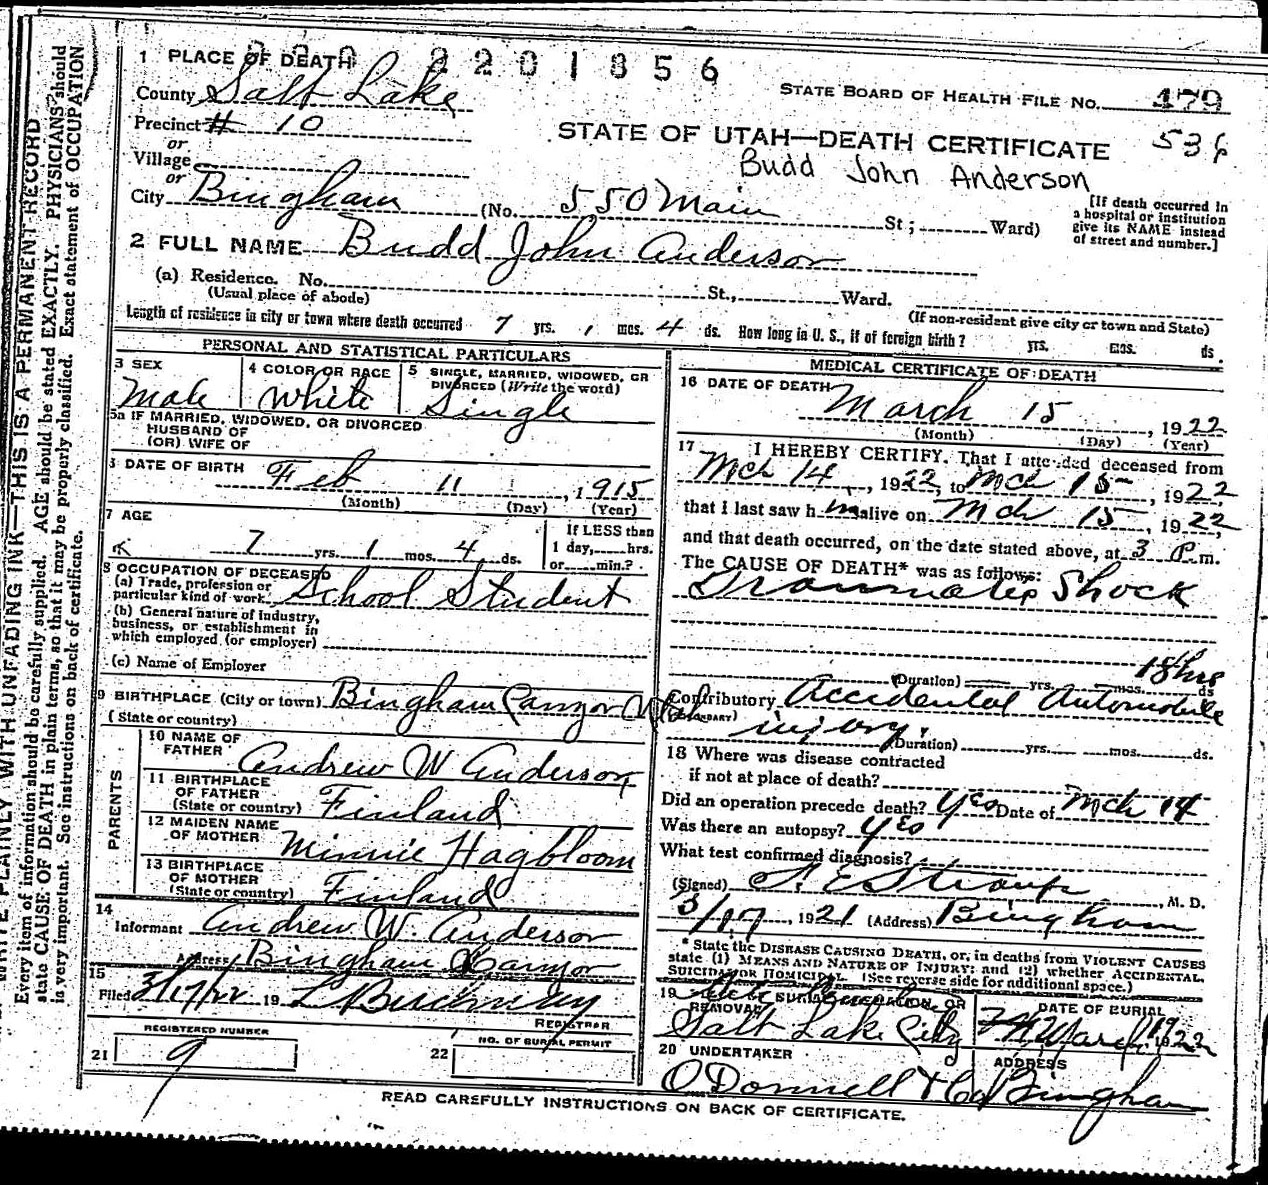 2201856
1 PLACE OF DEATH
STATE BOARD OF HEALTH FILE NO. 179
County Salt Lake
536
Precinct # 10
STATE OF UTAH—DEATH CERTIFICATE
or
Village
Budd John Anderson
or
City Bingham (No. 550 Main St; Ward)
[If death occurred in
a hospital or institution
give its NAME instead
of street and number.]
2 FULL NAME Budd John Anderson
(a) Residence. No. St., Ward.
(Usual place of abode)
(If non-resident give city or town and State)
Length of residence in city or town where death occurred 7 yrs. 1 mos. 4 ds. How long in U. S., if of foreign birth? yrs. mos. ds.
PERSONAL AND STATISTICAL PARTICULARS
3 SEX
Male
4 COLOR OR RACE
White
5 SINGLE, MARRIED, WIDOWED, OR
DIVORCED (Write the word)
Single
5a IF MARRIED, WIDOWED, OR DIVORCED
HUSBAND OF
(OR) WIFE OF
DATE OF BIRTH Feb 11, 1915
(Month) (Day) (Year)
7 AGE
7 yrs. 1 mos. 4 ds.
If LESS than
1 day, hrs.
or min.?
8 OCCUPATION OF DECEASED
(a) Trade, profession or
particular kind of work. School Student
(b) General nature of industry,
business, or establishment in
which employed (or employer)
(c) Name of Employer
9 BIRTHPLACE (City or town) Bingham Canyon
(State or country)
PARENTS
10 NAME OF
FATHER Andrew W Anderson
11 BIRTHPLACE
OF FATHER
(State or country) Finland
12 MAIDEN NAME
OF MOTHER Minnie Hagbloom
13 BIRTHPLACE
OF MOTHER
(State or country) Finland
14
Informant Andrew W. Anderson
Address Bingham Canyon
15
Filed 3/17/22 19
REGISTRAR
REGISTERED NUMBER
21 9
NO. OF BURIAL PERMIT
22
MEDICAL CERTIFICATE OF DEATH
16 DATE OF DEATH
March 15, 1922
(Month) (Day) (Year)
17 I HEREBY CERTIFY. That I attended deceased from
Mch 14, 1922, to Mch 15, 1922
that I last saw him alive on Mch 15, 1922,
and that death occurred, on the date stated above, at 3 P.m.
The CAUSE OF DEATH* was as follows:
Shock
18 hrs
(Duration) yrs. mos. ds
Contributory Accidental Automobile
injury
(Duration) yrs. mos. ds.
18 Where was disease contracted
if not at place of death?
Did an operation precede death? yes Date of Mch 14
Was there an autopsy? yes
What test confirmed diagnosis?
(Signed) M. D.
3/17, 1921 (Address) Bingham
*State the DISEASE CAUSING DEATH, or, in deaths from VIOLENT CAUSES
state (1) MEANS AND NATURE OF INJURY; and (2) whether ACCIDENTAL,
SUICIDAL or HOMICIDAL. (See reverse side for additional space.)
19 BURIAL, CREMATION, OR
REMOVAL
Salt Lake City
DATE OF BURIAL
March 19 1922
20 UNDERTAKER
O'Donnell & Co
ADDRESS
Bingham
READ CAREFULLY INSTRUCTIONS ON BACK OF CERTIFICATE.
WRITE PLAINLY WITH UNFADING INK—THIS IS A PERMANENT RECORD
Every item of information should be carefully supplied. AGE should be stated EXACTLY. PHYSICIANS should
state CAUSE OF DEATH in plain terms, so that it may be properly classified. Exact statement of OCCUPATION
is very important. See instructions on back of certificate.